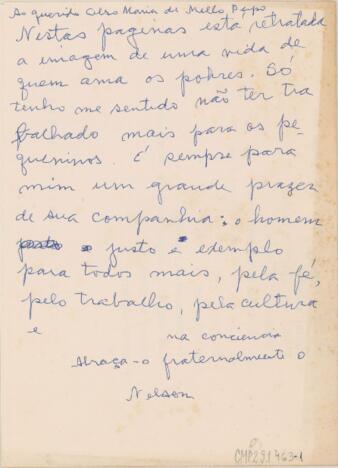 Ao querido Celso Maria de Mello Pupo
Nestas paginas está retratada
a imagem de uma vida de
quem ama os pobres. Só
tenho me sentido não ter tra
balhado mais para os pe-
queninos. É sempre para
mim um grande prazer
de sua companhia: o homem
justo e exemplo
para todos mais, pela fé,
pelo trabalho, pela cultura
e
na conciencia
Abraça-o fraternalmente o
Nelson
CMP2.9.1463-1